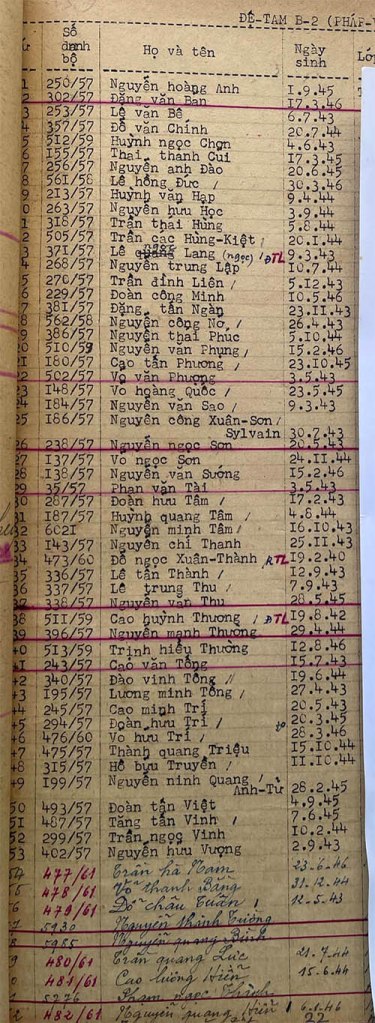 ĐỆ-TAM B-2 (PHÁP-
Số danh bộ Họ và tên Ngày sinh Lớp
1 250/57 Nguyễn hoàng Anh 1.9.45
2 302/57 Đặng văn Ban 17.3.46
3 253/57 Lê văn Bê 6.7.43
4 357/57 Đỗ văn Chính 20.7.44
5 512/59 Huỳnh ngọc Chọn 4.6.43
6 155/57 Thái thanh Cui 17.3.45
7 256/57 Nguyễn anh Đào 20.6.45
8 561/58 Lê hồng Đức / 30.3.46
9 213/57 Huỳnh văn Hạp 9.4.44
10 263/57 Nguyễn hữu Học 3.9.44
11 318/57 Trần thái Hùng 5.8.44
12 505/57 Trần các Hùng-Kiệt 20.1.44
13 371/57 Lê Lang (ngọc) / ĐTL 9.3.43
14 268/57 Nguyễn trung Lập 10.7.44
15 270/57 Trần đình Liên / 5.12.43
16 229/57 Đoàn công Minh 10.5.46
17 381/57 Đặng tấn Ngàn 23.11.43
18 562/58 Nguyễn công Nơ / 26.4.43
19 386/57 Nguyễn thái Phúc 5.10.44
20 510/59 Nguyễn văn Phụng / 15.2.46
21 180/57 Cao tấn Phương / 23.10.45
22 502/57 Võ văn Phương 3.5.43
23 148/57 Võ hoàng Quốc / 23.5.45
24 184/57 Nguyễn văn Sao / 9.3.43
25 186/57 Nguyễn công Xuân-Sơn /
Sylvain 30.7.43
26 238/57 Nguyễn ngọc Sơn 20.5.43
27 137/57 Võ ngọc Sơn 24.11.44
28 138/57 Nguyễn văn Sương 15.2.46
29 35/57 Phan văn Tài 3.5.43
30 287/57 Đoàn hữu Tâm / 17.2.43
31 187/57 Huỳnh quang Tâm / 4.8.44
32 6021 Nguyễn minh Tâm / 16.10.43
33 143/57 Nguyễn chí Thanh 25.11.43
34 473/60 Đỗ ngọc Xuân-Thành / RTL 19.2.40
35 336/57 Lê tấn Thành / 12.9.43
36 337/57 Lê trung Thu / 7.9.43
37 338/57 Nguyễn văn Thu 28.5.45
38 511/59 Cao huỳnh Thương / ĐTL 19.8.42
39 396/57 Nguyễn mạnh Thường 29.4.44
40 513/59 Trịnh hiếu Thường 12.8.46
41 243/57 Cao văn Tông 15.7.43
42 340/57 Đào vinh Tông // 19.6.44
43 195/57 Lương minh Tông / 27.4.43
44 245/57 Cao minh Trí 20.5.43
45 294/57 Đoàn hữu Trí / 20.3.45
46 476/60 Võ hữu Trí / 28.3.46
47 475/57 Thành quang Triệu 15.10.44
48 315/57 Hồ bửu Truyền / 11.10.44
49 199/57 Nguyễn ninh Quang /
Anh-Tử 28.2.45
50 493/57 Đoàn tấn Việt 4.9.45
51 487/57 Tăng tấn Vinh / 7.6.45
52 299/57 Trần ngọc Vinh 10.2.44
53 402/57 Nguyễn hữu Vượng 2.9.43
54 477/61 Trần hà Nam 23-6-46
478/61 Võ thanh Bằng 31.12.44
6 479/61 Đỗ châu Tuấn 12.5.43
5930 Nguyễn thịnh Tường
5985 Nguyễn quang Bình
480/61 Trần quang Lúc 21.7.44
481/61 Cao lương Hiển 15.6.44
5276 Phạm ngọc Thịnh
2 482/61 Nguyễn quang Hiển